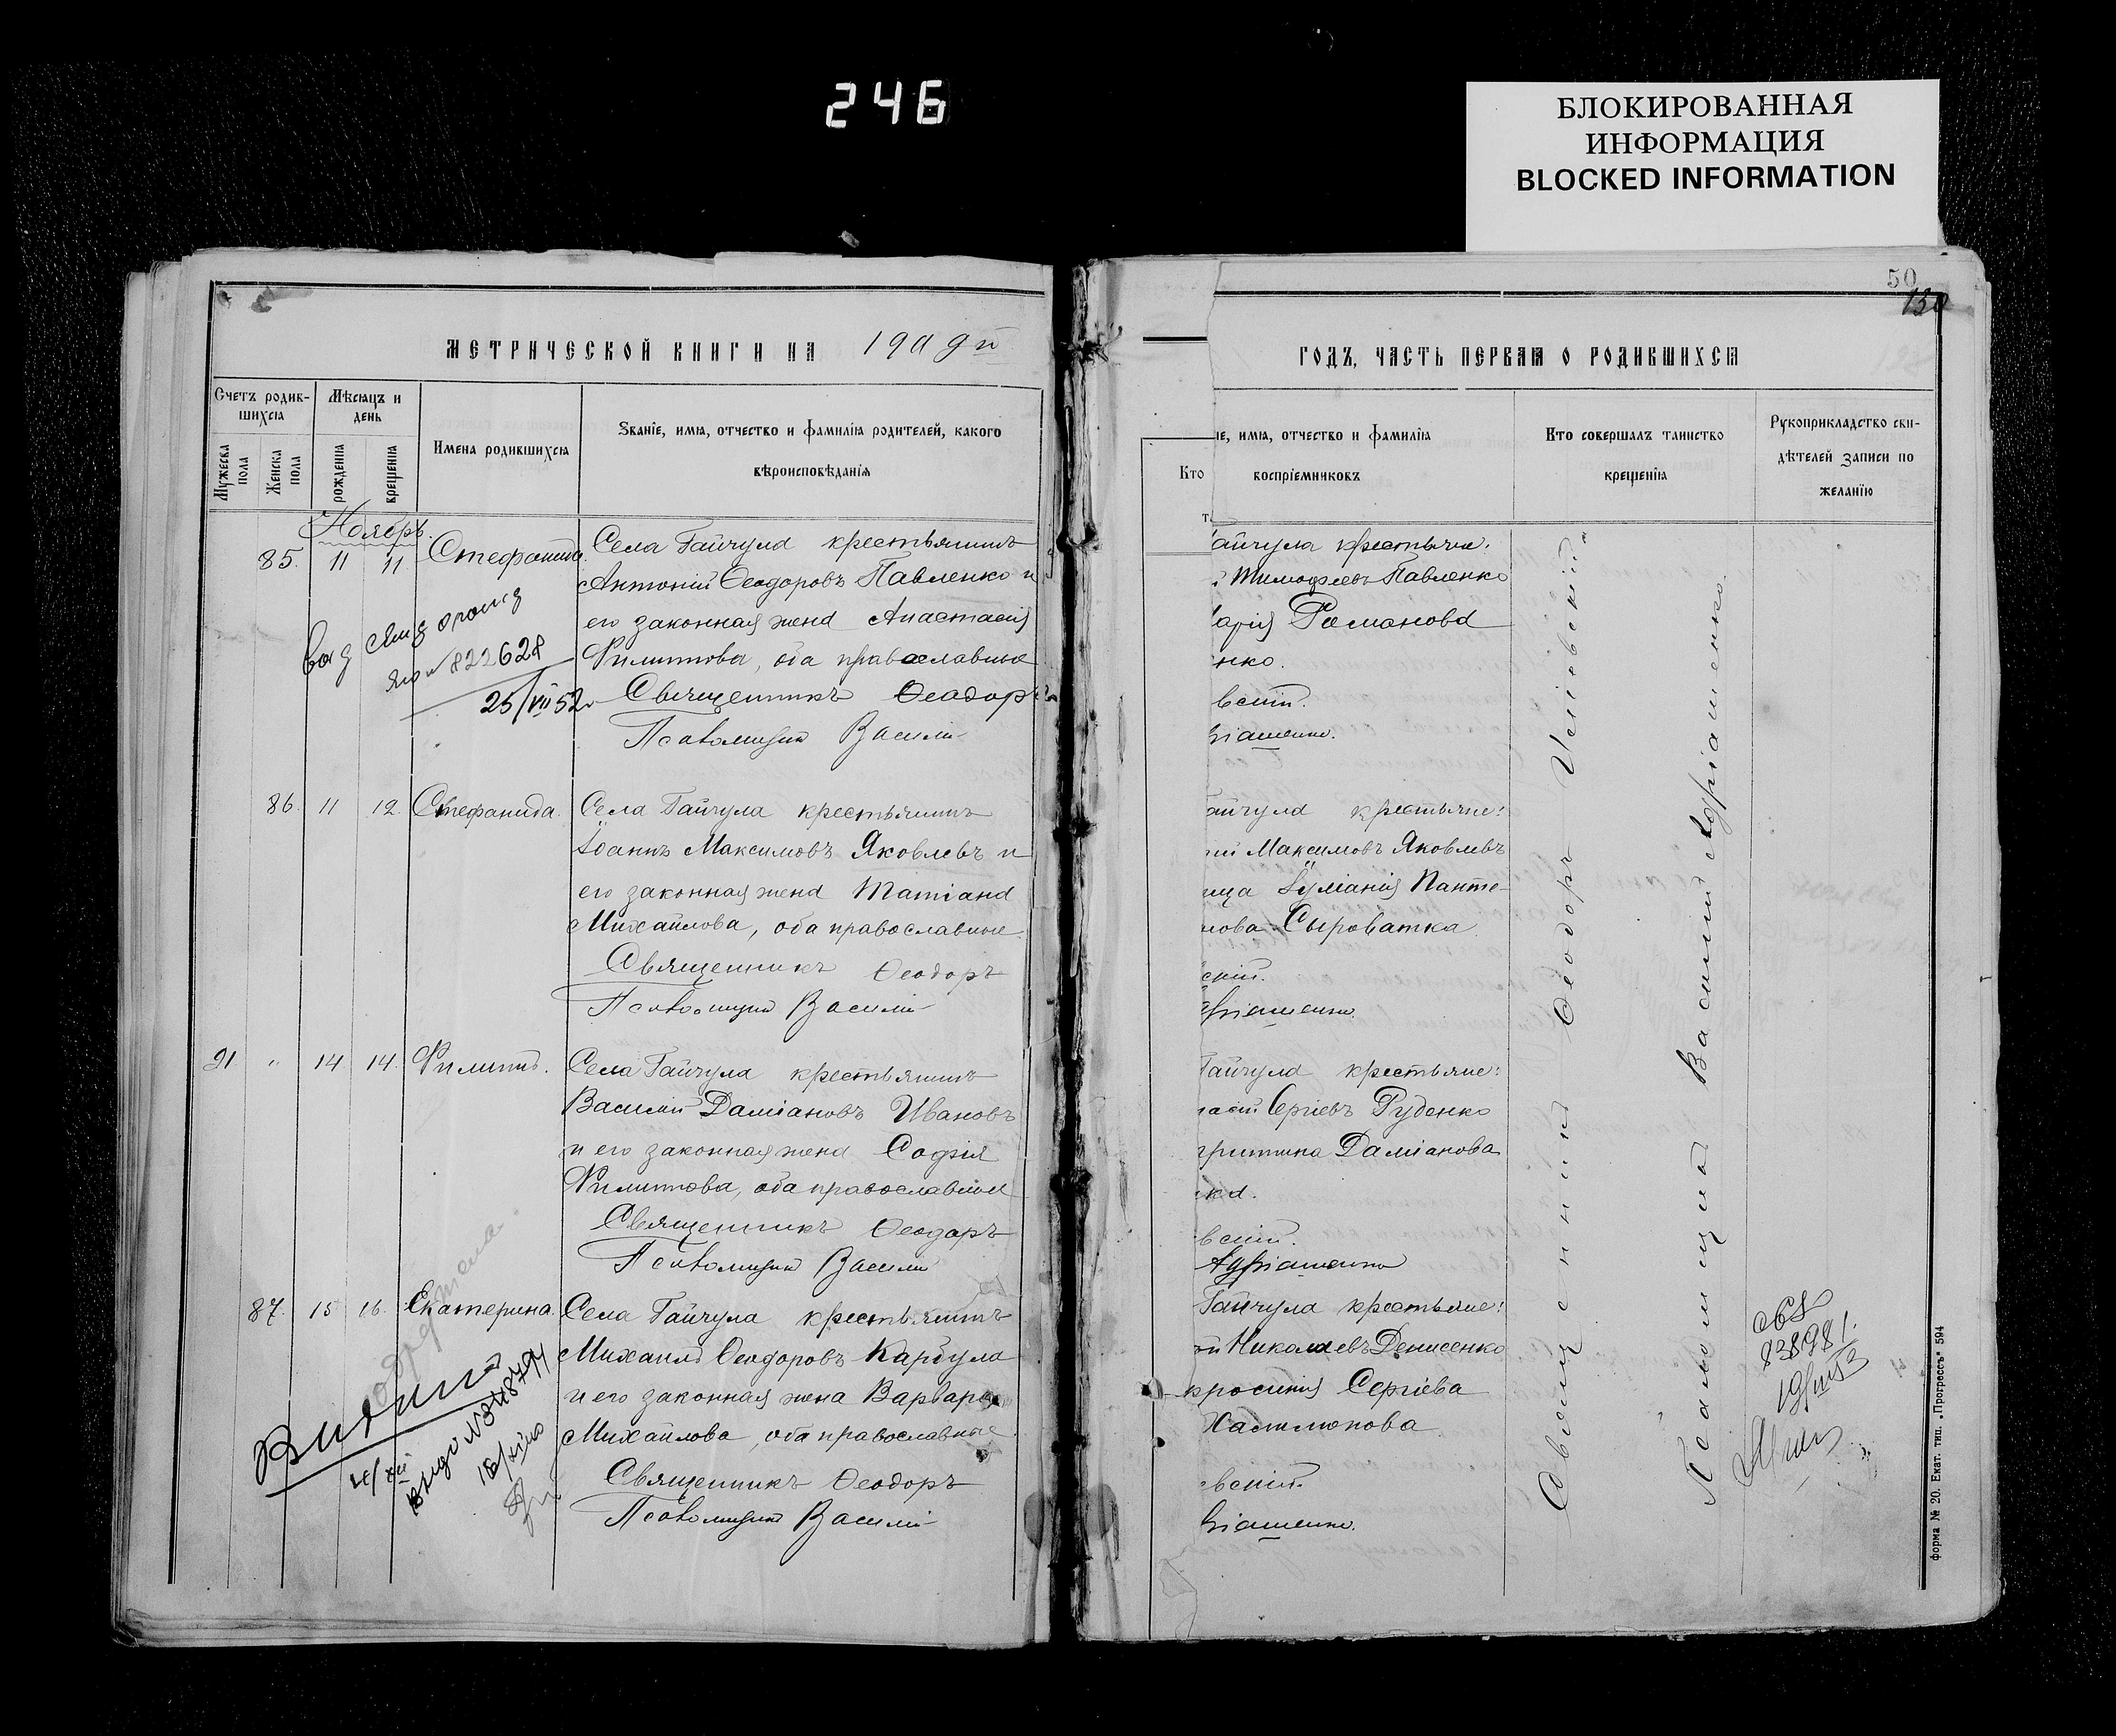 246
БЛОКИРОВАННАЯ
ИНФОРМАЦИЯ
BLOCKED INFORMATION
МЕТРИЧЕСКОЙ КНИГИ НА 1909 й
Счетъ родив-
шихсѧ
Мѣсѧцъ и
день
Мужеска пола
Женска пола
рожденіѧ
крещеніѧ
Имена родившихсѧ
Званіе, имѧ, отчество и фамиліѧ родителей, какого
вѣроисповѣданіѧ
Ноябрь.
85. 11 11 Стефанида. Села Гайчула крестьянинъ
Антоній Ѳеодоровъ Павленко и
его законная жена Анастасія
Филиппова, оба православные
Священникъ Ѳеодоръ
Псаломщикъ Василій
822628
25/VII 52
86. 11 12. Стефанида. Села Гайчула крестьянинъ
Іоаннъ Максимовъ Яковлевъ и
его законная жена Татіана
Михайлова, оба православные
Священникъ Ѳеодоръ
Псаломщикъ Василій
91 " 14 14. Филиппъ. Села Гайчула крестьянинъ
Василій Даміановъ Ивановъ
и его законная жена Софія
Филиппова, оба православные
Священникъ Ѳеодоръ
Псаломщикъ Василій
87. 15 16. Екатерина. Села Гайчула крестьянинъ
Михаилъ Ѳеодоровъ Карбула
и его законная жена Варвара
Михайлова, оба православные
Священникъ Ѳеодоръ
Псаломщикъ Василій
50
130
ГОДЪ, ЧАСТЬ ПЕРВАѦ О РОДИВШИХСѦ
Кто
іе, имѧ, отчество и фамиліѧ
воспріемниковъ
Кто совершалъ таинство
крещеніѧ
Рукоприкладство сви-
дѣтелей записи по
желанію
айчула крестьяне:
Тимофеевъ Павленко
арія Романова
нко.
вскій.
ріашенко.
айчула крестьяне:
ій Максимовъ Яковлевъ
ица Іуліанія Панте-
нова Сыроватка
скій.
дріашенко.
Гайчула крестьяне:
асій Сергіевъ Руденко
гриппина Даміанова
ка.
вскій.
Адріашенко
Гайчула крестьяне:
ой Николаевъ Денисенко
кросинія Сергіева
Хатлюкова
вскій.
ріашенко.
Священникъ Ѳеодоръ
Псаломщикъ Василій Адріашенко
838981.
форма № 20. Екат. тип. „Прогрессъ“ 594